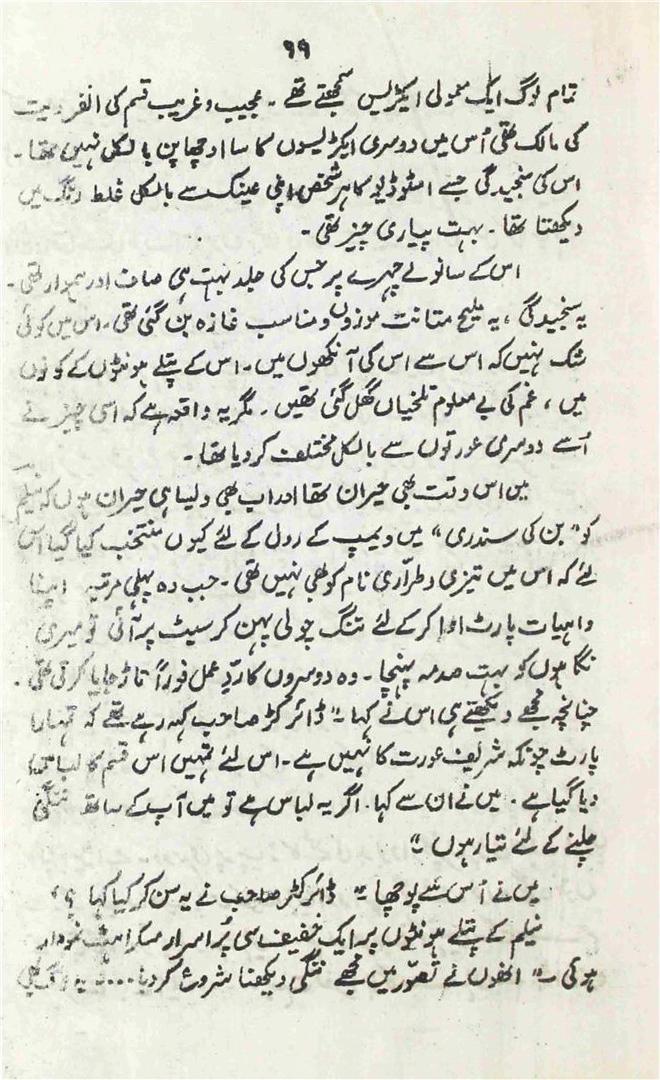 ۹۹
تمام لوگ ایک معمولی ایکٹریس سمجھتے تھے ۔ عجیب و غریب قسم کی انفرادیت
کی مالک تھی اُس میں دوسری ایکٹریسوں کا سا اوچھا پن بالکل نہیں تھا ۔
اس کی سنجیدگی جسے اسٹوڈیو کا ہر شخص اپنی عینک سے بالکل غلط رنگ میں
دیکھتا تھا ۔ بہت پیاری چیز تھی ۔
اس کے سانولے چہرے پر جس کی جلد بہت ہی صاف اور ہموار تھی ۔
یہ سنجیدگی ، یہ ملیح متانت موزوں و مناسب غازہ بن گئی تھی ۔ اس میں کوئی
شک نہیں کہ اس سے اس کی آنکھوں میں ۔ اس کے پتلے ہونٹوں کے کونوں
میں ، غم کی بے معلوم تلخیاں گھل گئی تھیں ۔ مگر یہ واقعہ ہے کہ اسی چیز نے
اُسے دوسری عورتوں سے بالکل مختلف کر دیا تھا ۔
میں اس وقت بھی حیران تھا اور اب بھی ویسا ہی حیران ہوں کہ نیلم
کو " بن کی سندری " میں ویمپ کے رول کے لئے کیوں منتخب کیا گیا اس
لئے کہ اس میں تیزی و طرّاری نام کو بھی نہیں تھی ۔ جب وہ پہلی مرتبہ اپنا
واہیات پارٹ ادا کرکے لئے تنگ چولی پہن کر سیٹ پر آئی تو میری
نگاہوں کو بہت صدمہ پہنچا ۔ وہ دوسروں کا ردِّ عمل فوراً تاڑ جایا کرتی تھی ۔
چنانچہ مجھے دیکھتے ہی اس نے کہا ۔" ڈائرکٹر صاحب کہہ رہے تھے کہ تمہارا
پارٹ چونکہ شریف عورت کا نہیں ہے ۔ اس لئے تمہیں اس قسم کا لباس
دیا گیا ہے ۔ میں نے ان سے کہا ۔ اگر یہ لباس ہے تو میں آپ کے ساتھ ننگی
چلنے کے لئے تیار ہوں ۔"
میں نے اُس سے پوچھا ۔" ڈائرکٹر صاحب نے یہ سن کر کیا کہا ؟ "
نیلم کے پتلے ہونٹوں پر ایک خفیف سی پُراسرار مسکراہٹ نمودار
ہوئی ۔" انھوں نے تصوّر میں مجھے ننگی دیکھنا شروع کر دیا .... یہ لوگ بھی